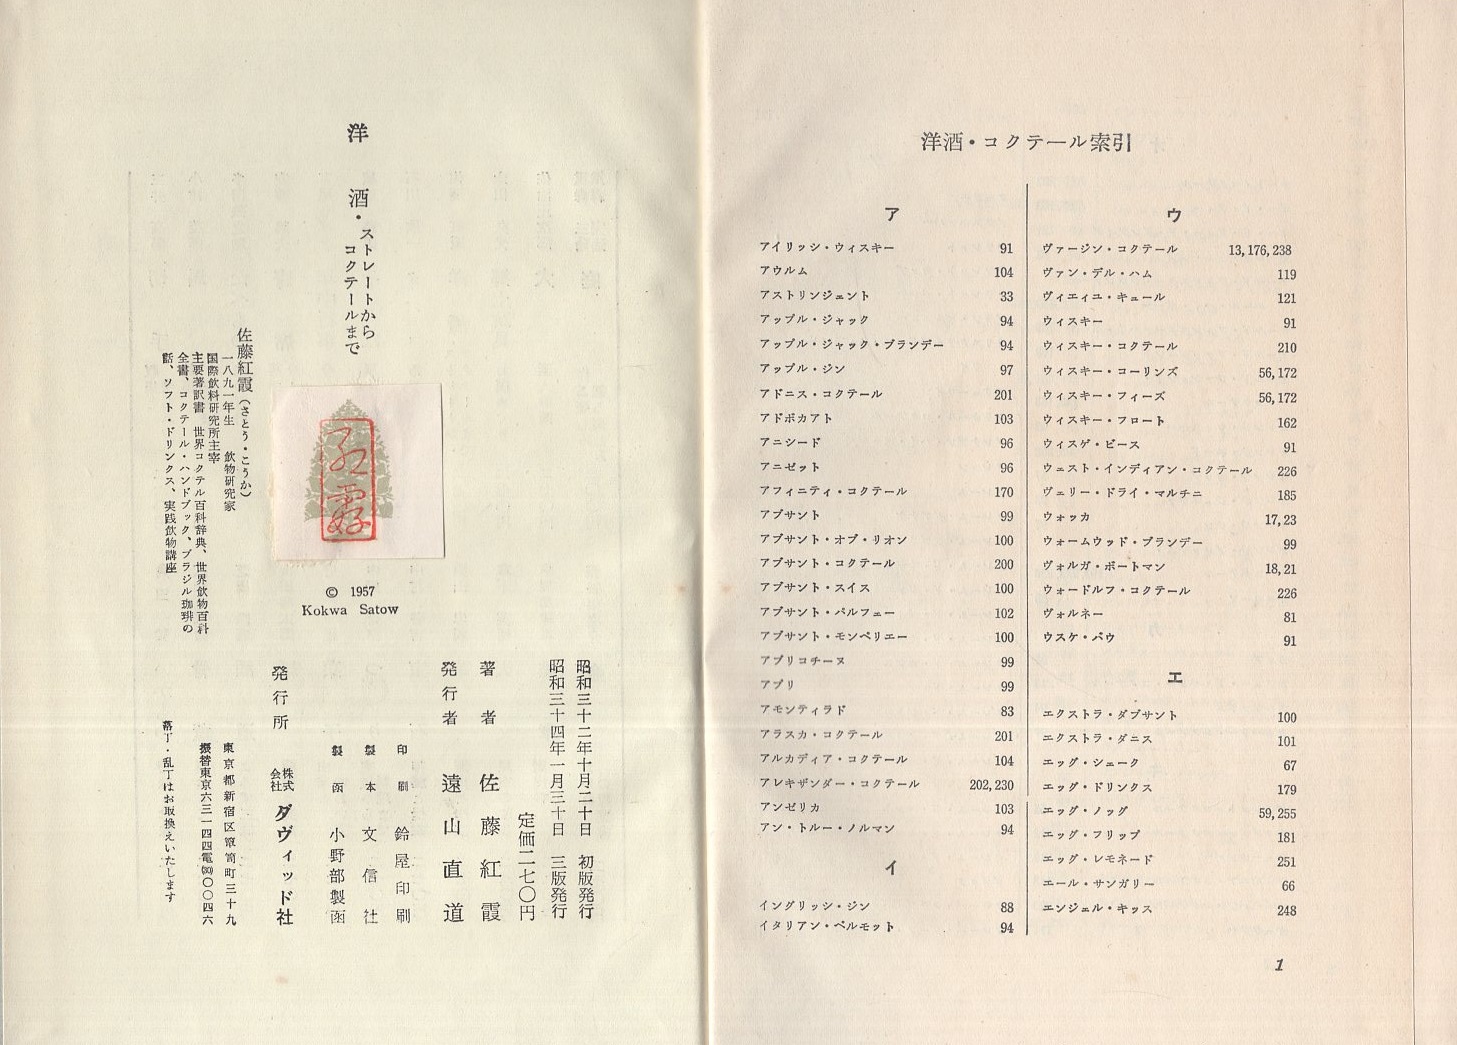 洋酒・ストレートから
コクテールまで
佐藤紅霞(さとう・こうか)
一八九一年生 飲物研究家
国際飲料研究所主宰
主要著訳書 世界コクテル百科辞典、世界飲物百科
全書、コクテール・ハンドブック、ブラジル珈琲の
話、ソフト・ドリンクス、実践飲物講座
紅霞
© 1957
Kokwa Satow
昭和三十二年十月二十日 初版発行
昭和三十四年一月三十日 三版発行
定価二七〇円
著者 佐藤紅霞
発行者 遠山直道
印刷 鈴屋印刷
製本 文信社
製函 小野部製函
発行所 株式会社 ダヴィッド社
東京都新宿区箪笥町三十九
振替東京六三一四四電㉞〇〇四六
落丁・乱丁はお取換えいたします
洋酒・コクテール索引
ア
アイリッシ・ウィスキー 91
アウルム 104
アストリンジェント 33
アップル・ジャック 94
アップル・ジャック・ブランデー 94
アップル・ジン 97
アドニス・コクテール 201
アドボカアト 103
アニシード 96
アニゼット 96
アフィニティ・コクテール 170
アブサント 99
アブサント・オブ・リオン 100
アブサント・コクテール 200
アブサント・スイス 100
アブサント・パルフェー 102
アブサント・モンペリエー 100
アブリコチーヌ 99
アプリ 99
アモンティラド 83
アラスカ・コクテール 201
アルカディア・コクテール 104
アレキザンダー・コクテール 202,230
アンゼリカ 103
アン・トルー・ノルマン 94
イ
イングリッシ・ジン 88
イタリアン・ベルモット 94
ウ
ヴァージン・コクテール 13,176,238
ヴァン・デル・ハム 119
ヴィエィユ・キュール 121
ウィスキー 91
ウィスキー・コクテール 210
ウィスキー・コーリンズ 56,172
ウィスキー・フィーズ 56,172
ウィスキー・フロート 162
ウィスゲ・ビース 91
ウェスト・インディアン・コクテール 226
ヴェリー・ドライ・マルチニ 185
ウォッカ 17,23
ウォームウッド・ブランデー 99
ヴォルガ・ボートマン 18,21
ウォードルフ・コクテール 226
ヴォルネー 81
ウスケ・バウ 91
エ
エクストラ・ダブサント 100
エクストラ・ダニス 101
エッグ・シェーク 67
エッグ・ドリンクス 179
エッグ・ノッグ 59,255
エッグ・フリップ 181
エッグ・レモネード 251
エール・サンガリー 66
エンジェル・キッス 248
1